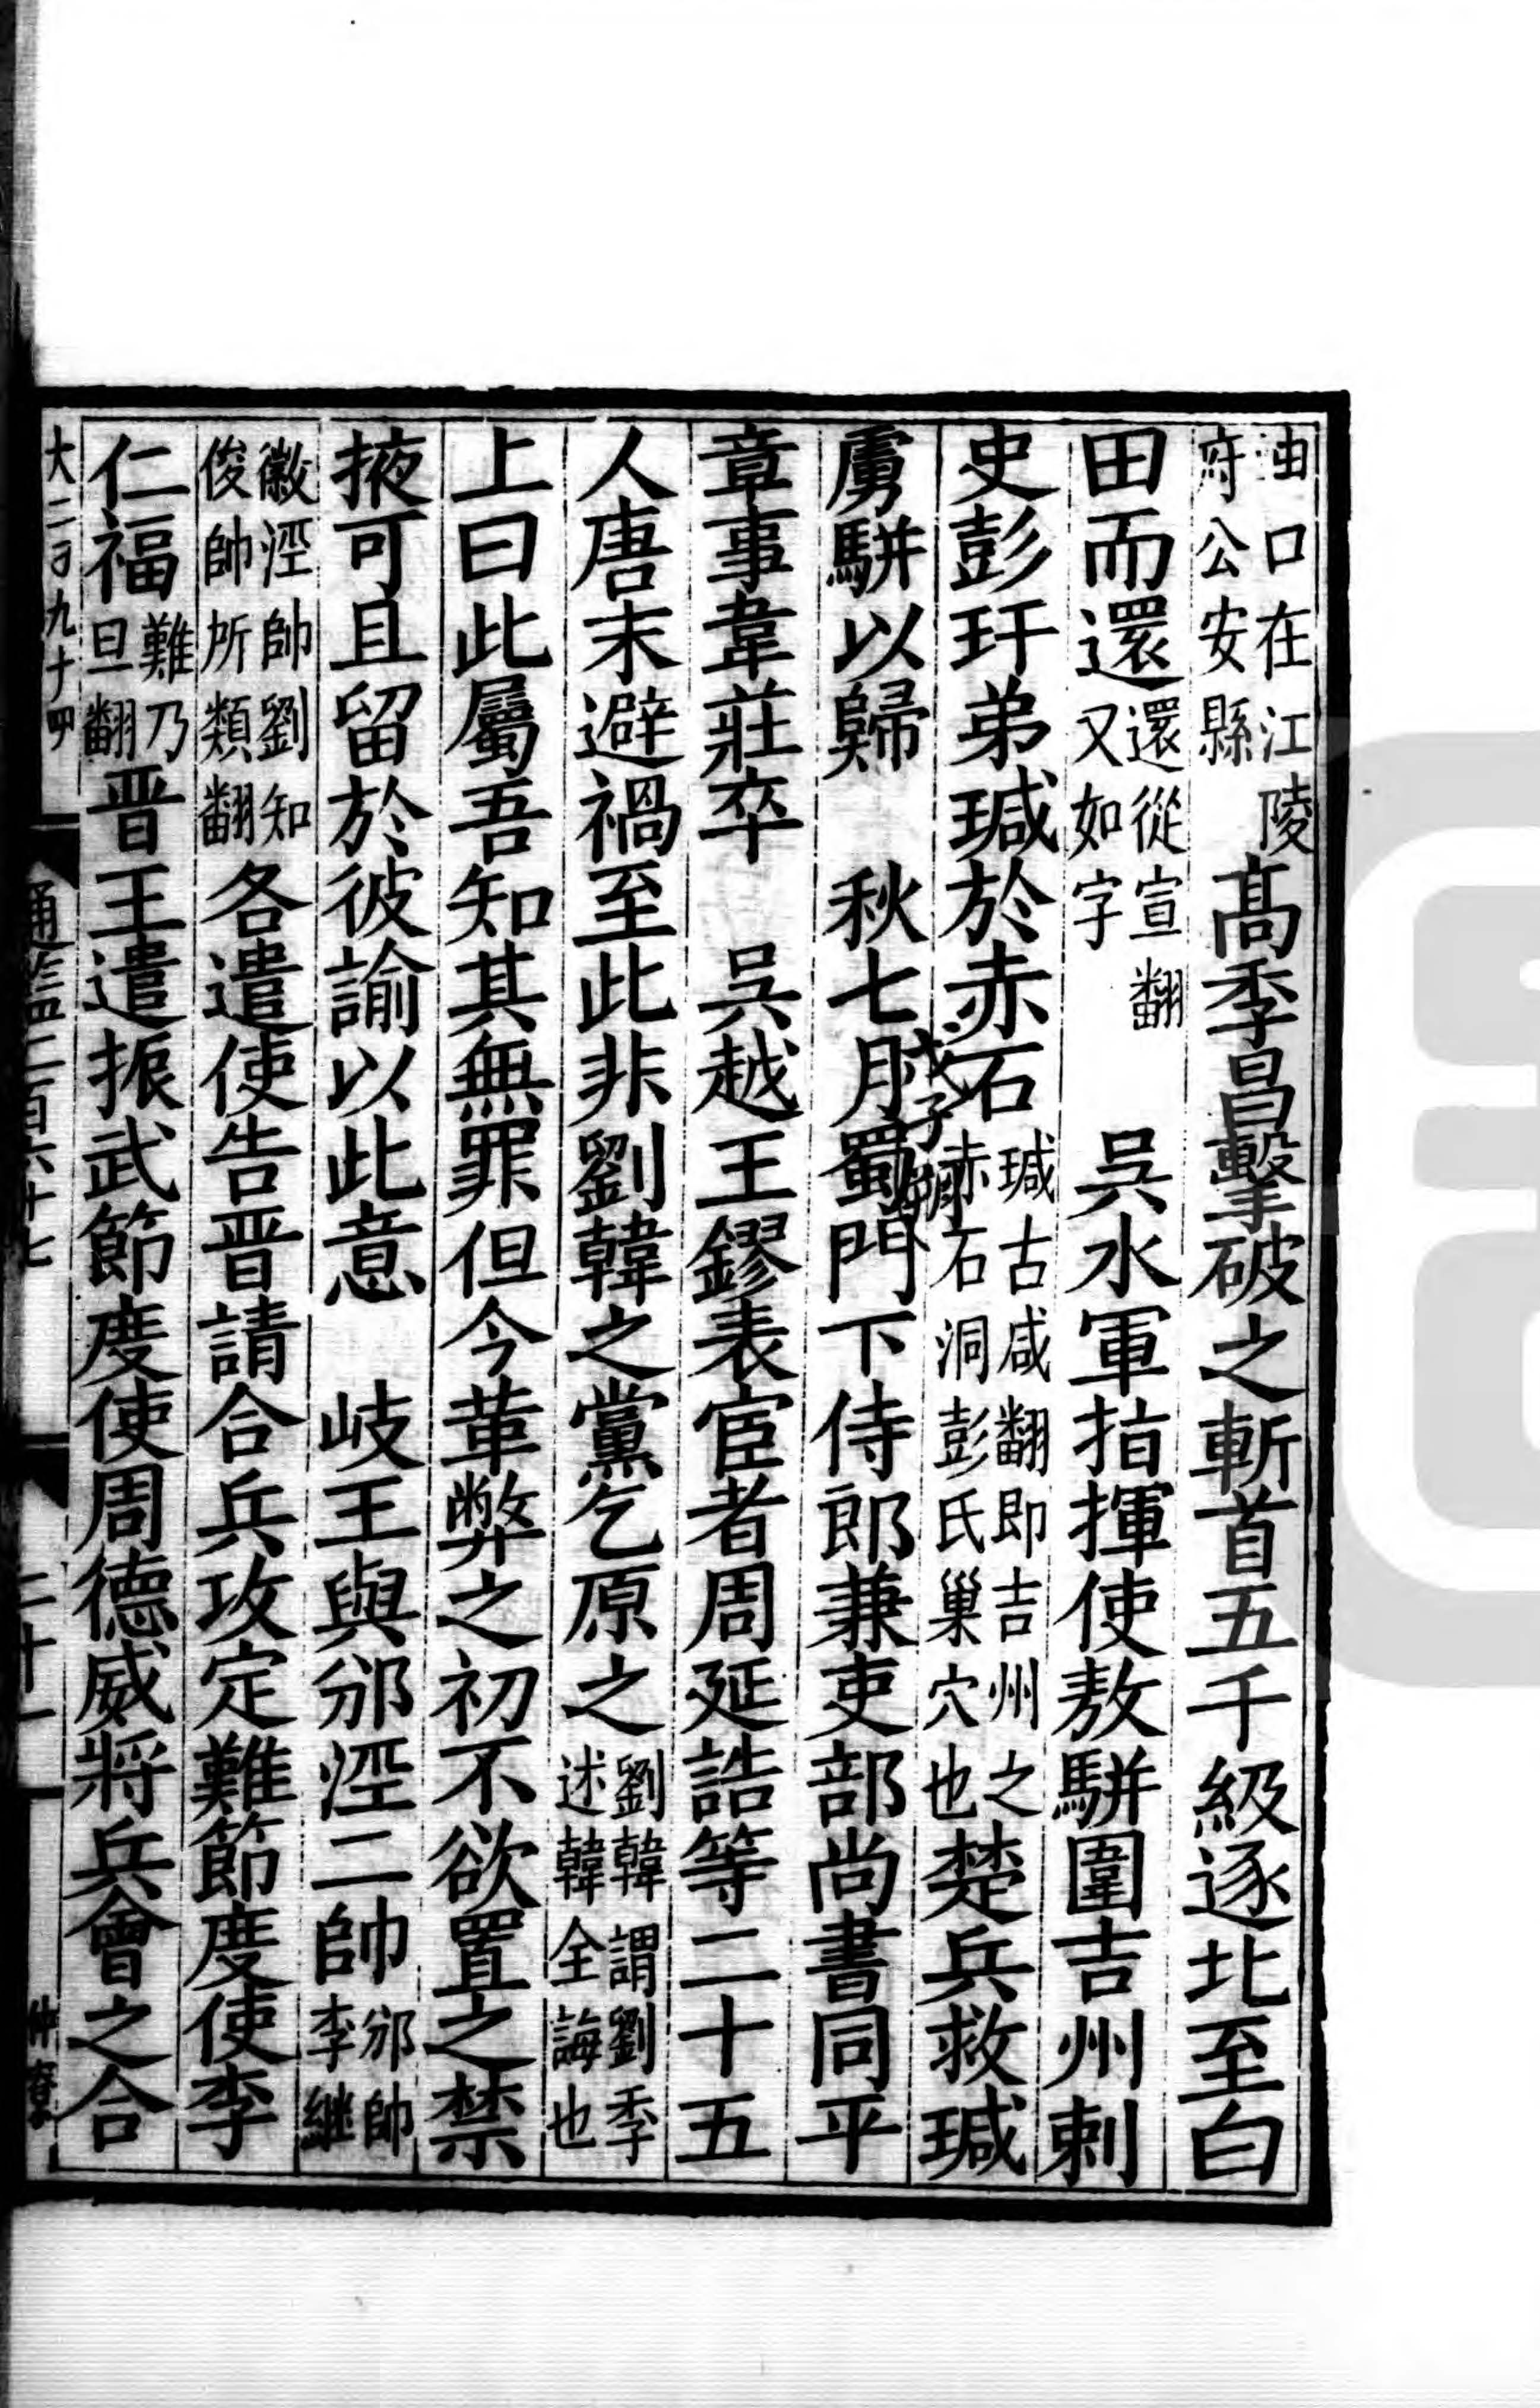 由口在江陵府公安縣高季昌擊破之斬首五千級逐北至白
田而還還從宣翻又如字吳水軍指揮使敖駢圍吉州剌
史彭玕弟瑊於赤石瑊古咸翻即吉州之赤石洞彭氏巢穴也楚兵救瑊
虜駢以歸 秋七月蜀門下侍郎兼吏部尚書同平
戊子朔
章事韋莊卒 吳越王鏐表宦者周延誥等二十五
人唐末避禍至此非劉韓之黨乞原之劉韓謂劉季述韓全誨也
上曰此屬吾知其無罪但今革弊之初不欲置之禁
掖可且留於彼諭以此意 岐王與邠涇二帥邠帥李繼
徽涇帥劉知俊帥所類翻各遣使告晉請合兵攻定難節度使李
仁福難乃旦翻晉王遣振武節度使周德威將兵會之合
大二百九十四
通鑑二百六十七
二十一